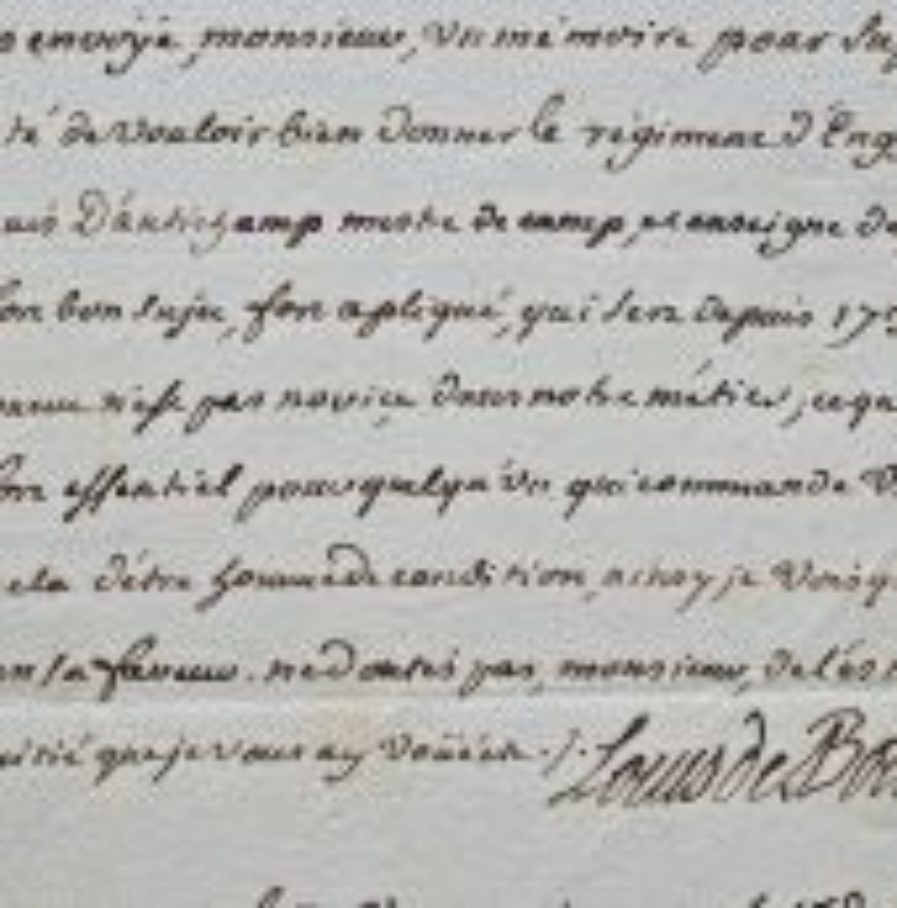 envoyé, monsieur, un mémoire pour sup
té de vouloir bien donner le régiment d'Eng
Dautichamp mestre de camp, et enseigne de
fort bon sujet, fort apliqué, qui sert depuis 17
n'est pas novice dans notre métier, ce qu
fort essentiel pour quelqu'un qui commande
ela d'être homme de condition, ainsy je vois q
en sa faveur. ne doutés pas, monsieur, de l'es
itié que je vous ay voüée ./. Louis de Bou